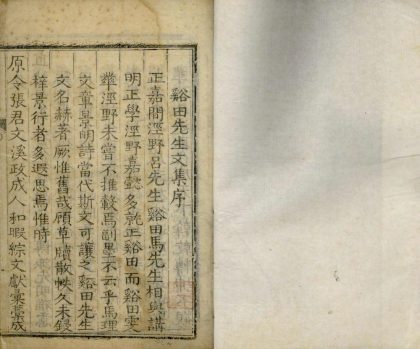 谿田先生文集序
正嘉間涇野呂先生谿田馬先生相與講
明正學涇野嘉懿多就正谿田而谿田雯
華涇野未嘗不推轂焉副墨不云乎馬理
文章景明詩當代斯文可讓之谿田先生
文名赫著厥惟舊哉顧草牘散帙久未鋟
梓景行者多遐思焉惟時
原令張君文溪政成人和暇綜文獻彙彙成